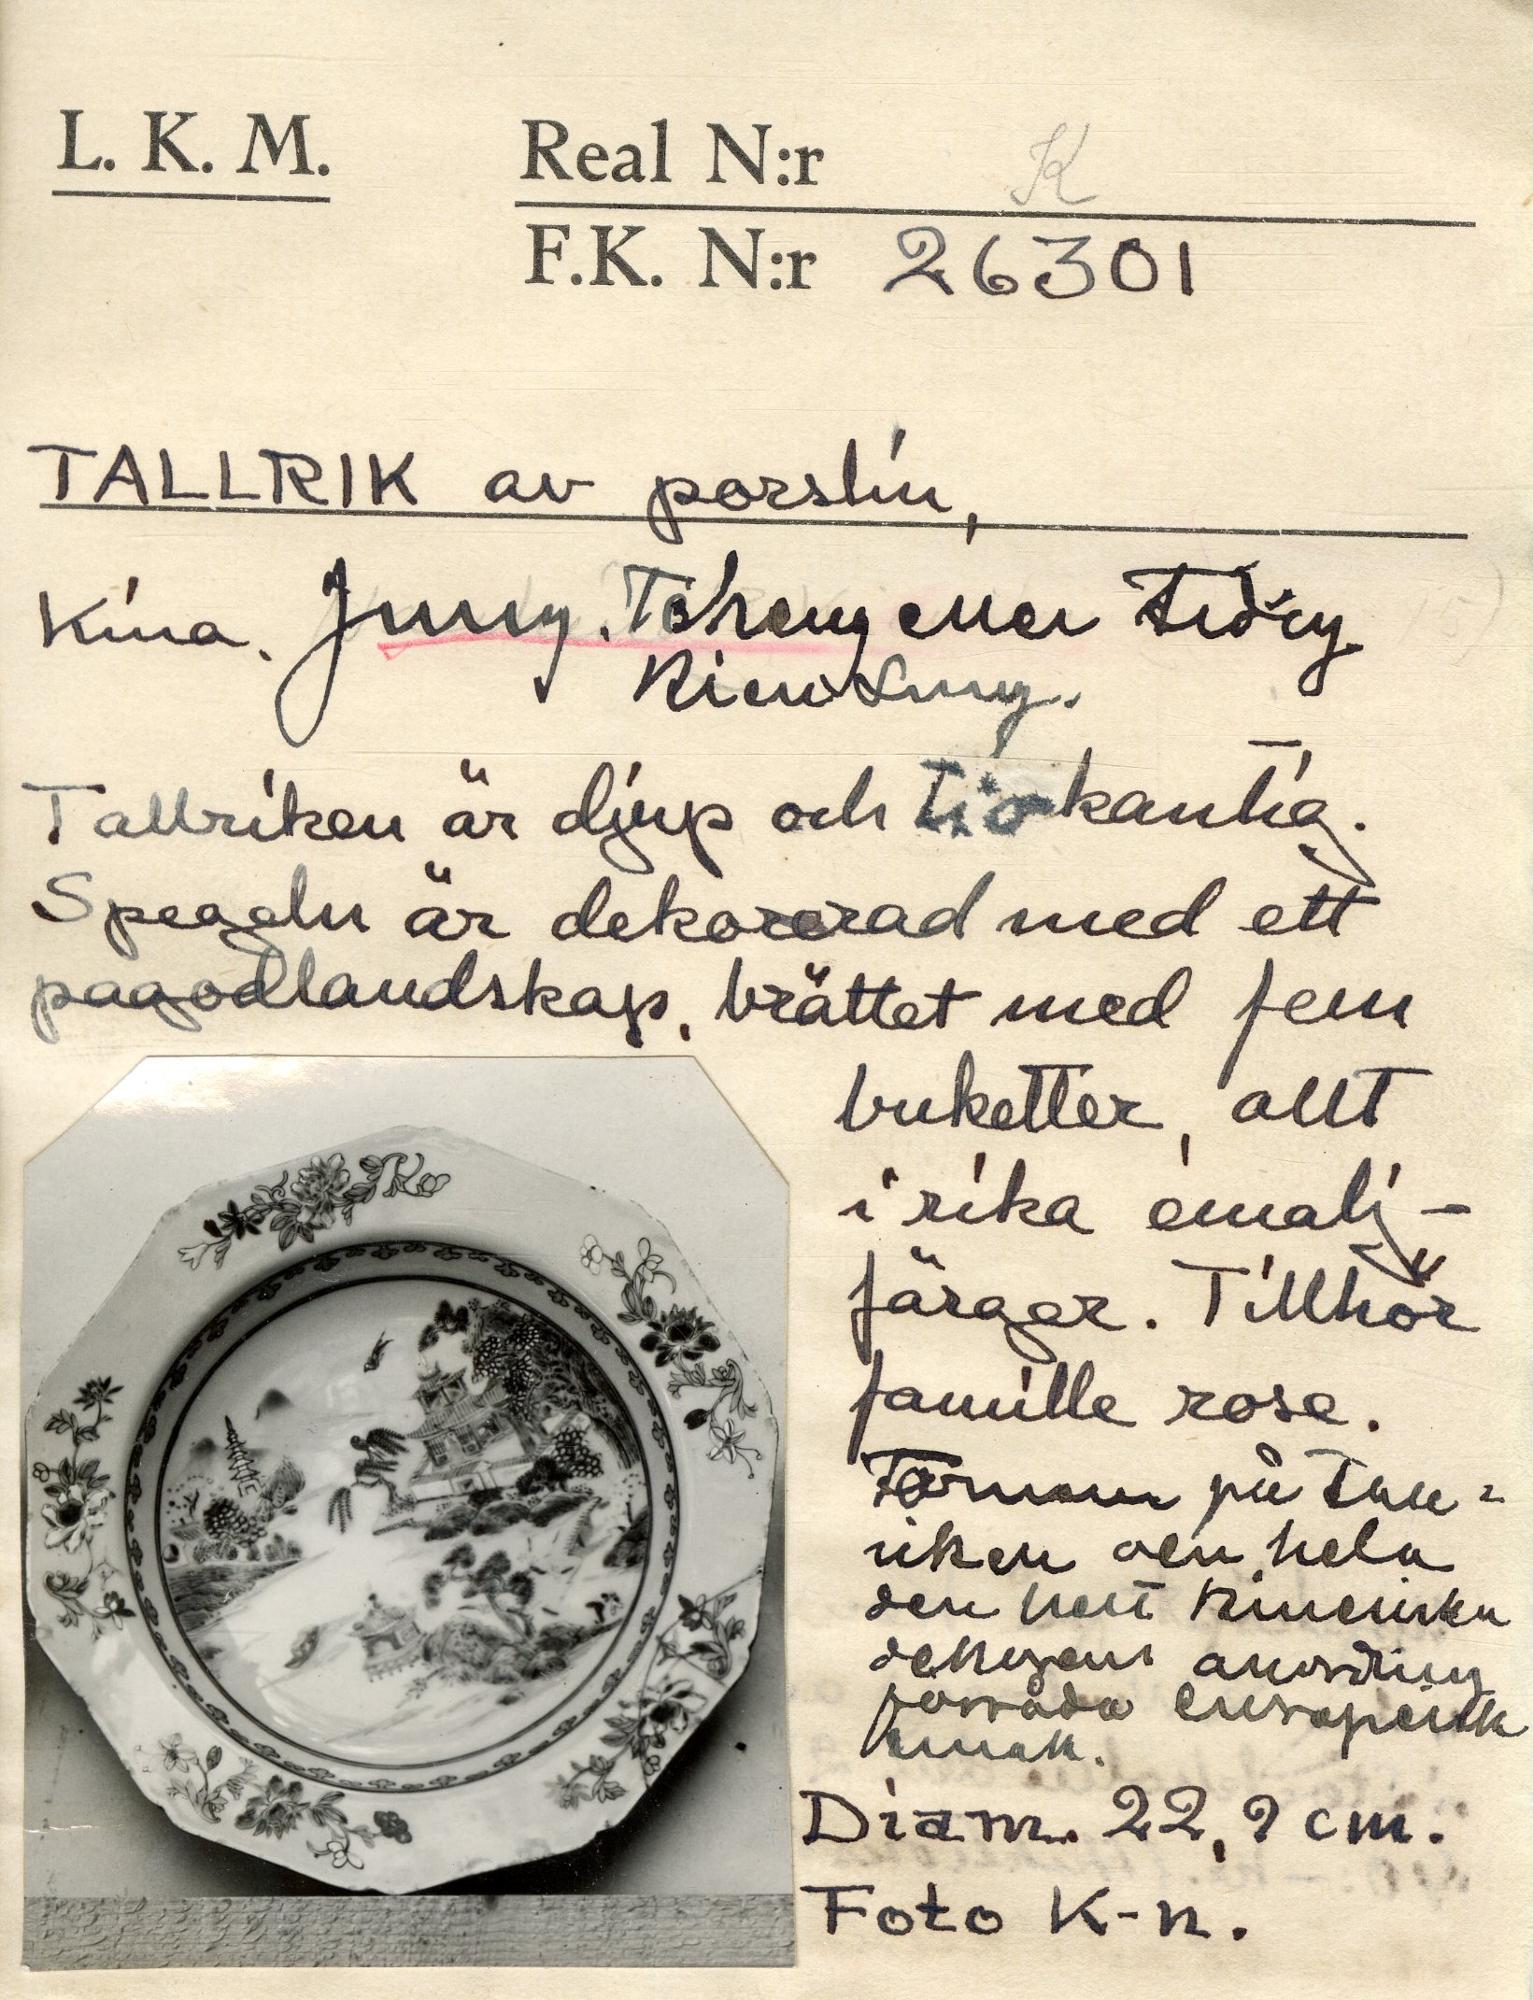 L. K. M.
Real N:r K
F.K. N:r 26301
TALLRIK av porslin,
Kina. Jung. Tcheng eller tidig
Kien Lung.
Tallriken är djup och tiokantig.
Spegeln är dekorerad med ett
pagodlandskap, brättet med fem
buketter, allt
i rika emalj-
färger. Tillhör
famille rose.
Formen på tall-
riken och hela
den helt kinesiska
dekorens anordning
förråda europeisk
smak.
Diam. 22,9 cm.
Foto K-n.